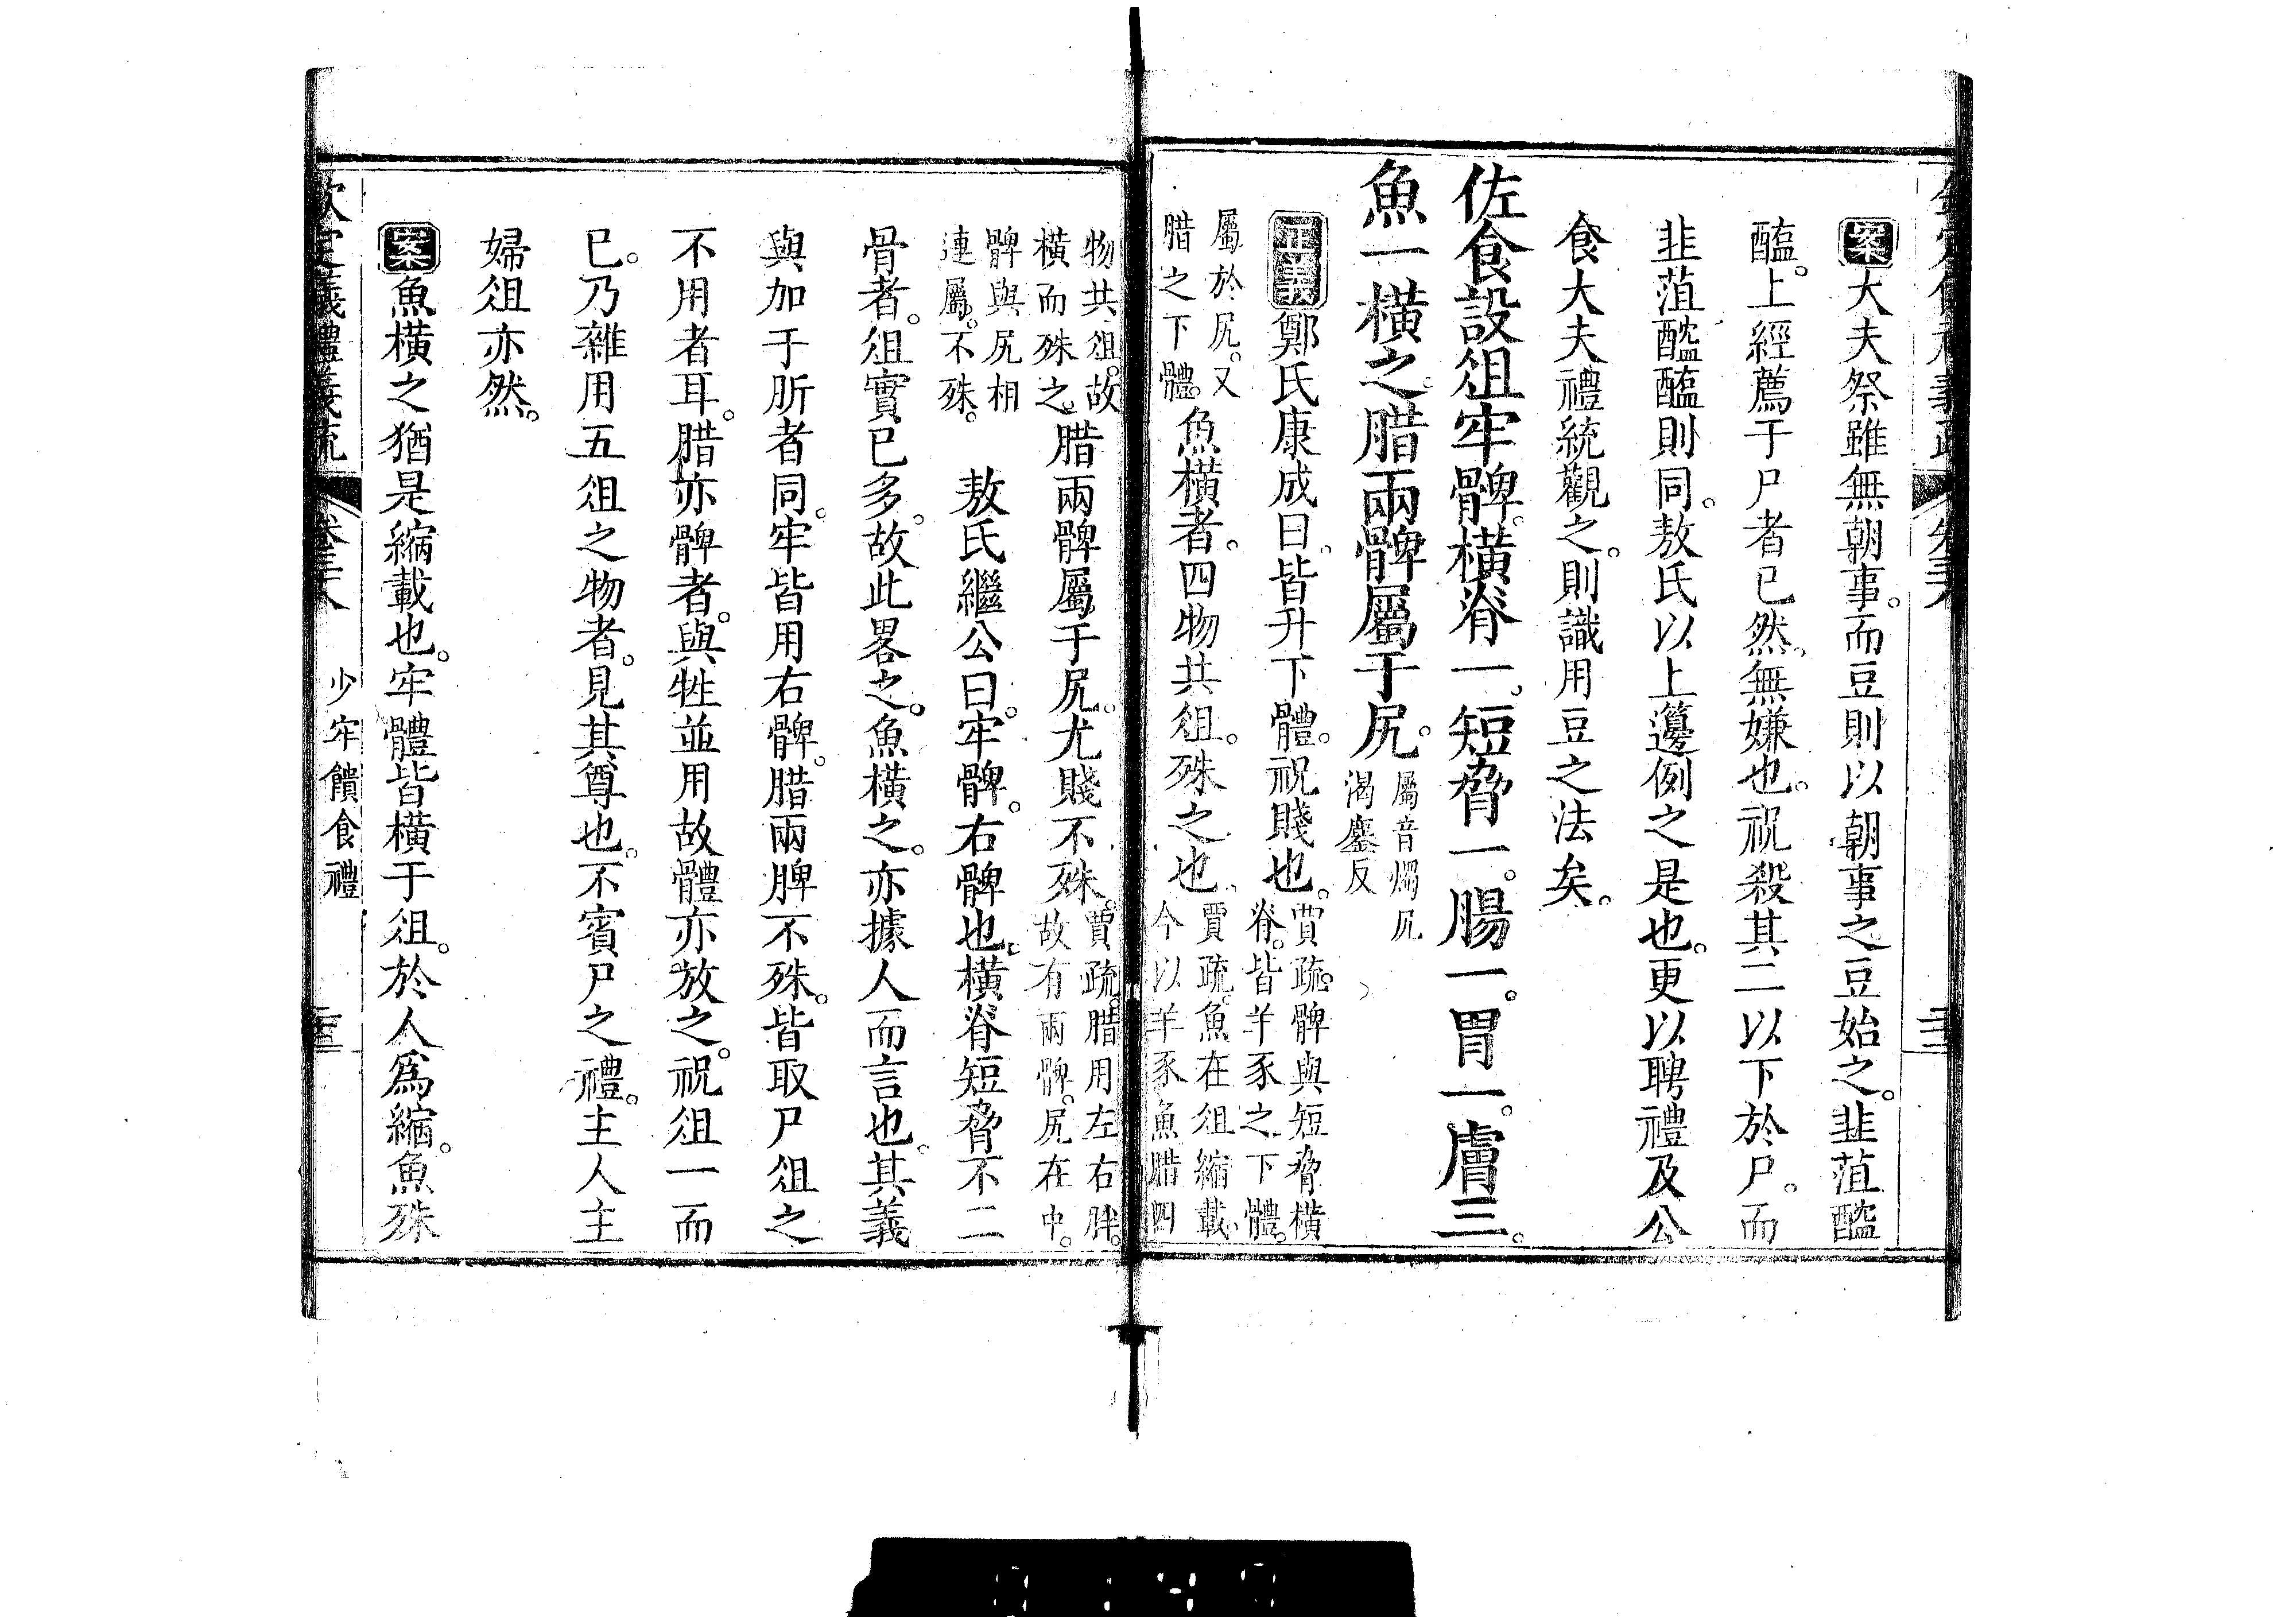 案大夫祭雖無朝事。而豆則以朝事之豆始之。韭菹醓
醢。上經薦于尸者已然。無嫌也。祝殺其二以下於尸。而
韭菹醓醢則同。敖氏以上籩例之是也。更以聘禮及公
食大夫禮統觀之。則識用豆之法矣。
佐食設俎牢髀。橫脊一。短脅一。腸一。胃一。膚三。
魚一橫之。腊兩髀屬于尻。屬音燭尻
渴鏖反
正義鄭氏康成曰。皆升下體。祝賤也。賈疏。髀與短脅橫
脊。皆羊豕之下體。
屬於尻。又
腊之下體。魚橫者。四物共俎。殊之也。賈疏。魚在俎縮載。
今以羊豕魚腊四
物共俎。故
橫而殊之。腊兩髀屬于尻。尤賤不殊。賈疏。腊用左右胖。
故有兩髀。尻在中。
髀與尻相
連屬。不殊。 敖氏繼公曰。牢髀。右髀也。橫脊短脅不二
骨者。俎實已多。故此畧之。魚橫之。亦據人而言也。其義
與加于肵者同。牢皆用右髀。腊兩脾不殊。皆取尸俎之
不用者耳。腊亦髀者。與牲並用故體亦放之。祝俎一而
已。乃雜用五俎之物者。見其尊也。不賓尸之禮。主人主
婦俎亦然。
案魚橫之猶是縮載也。牢體皆橫于俎。於人爲縮。魚殊
欽定儀禮義疏 卷三十八 少牢饋食禮